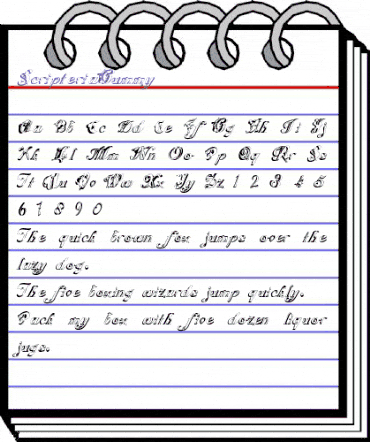 ScripteriaDummy
Aa Bb Cc Dd Ee Ff Gg Hh Ii Jj
Kk Ll Mm Nn Oo Pp Qq Rr Ss
Tt Uu Vv Ww Xx Yy Zz 1 2 3 4 5
6 7 8 9 0
The quick brown fox jumps over the
lazy dog.
The five boxing wizards jump quickly.
Pack my box with five dozen liquor
jugs.